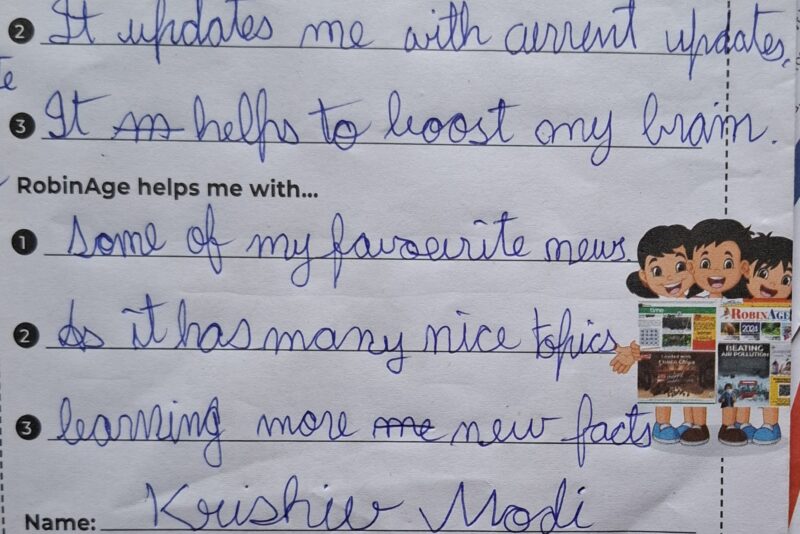 2 It updates me with current updates.
3 It helps to boost my brain.
RobinAge helps me with...
1 Some of my favourite news
2 As it has many nice topics
3 learning more new facts
ROBINAGE
2024
BEATING AIR POLLUTION
Name: Krishiv Modi